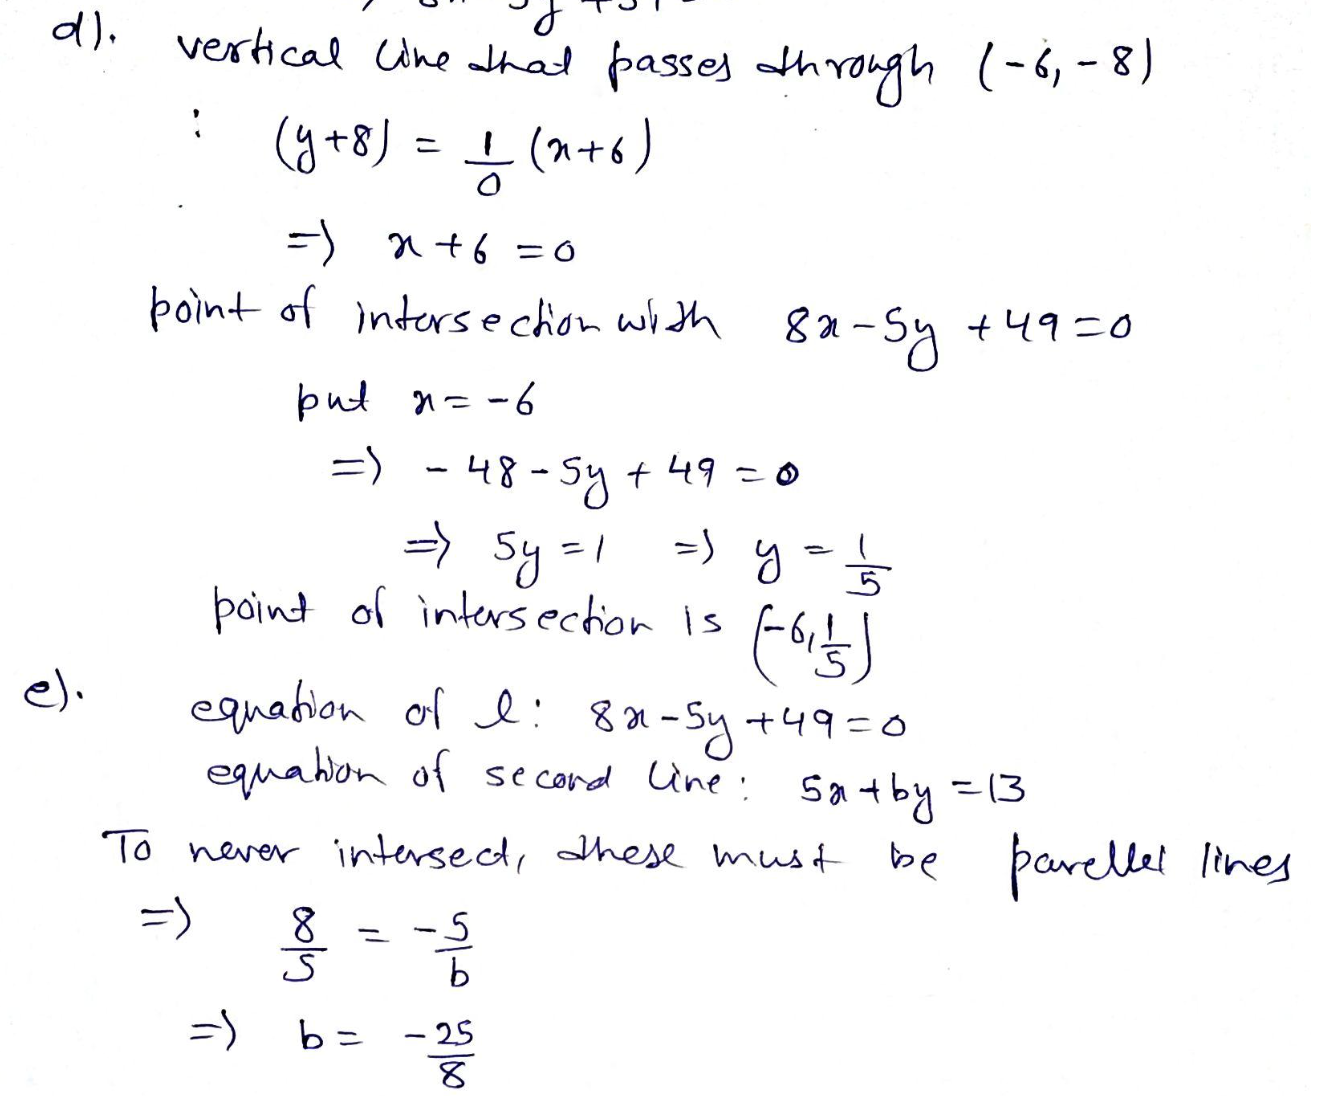 d). vertical line that passes through (-6, -8)
: (y+8) = 1/0 (x+6)
=> x+6 = 0
point of intersection with 8x-5y+49=0
put x = -6
=> -48-5y+49=0
=> 5y=1 => y = 1/5
point of intersection is (-6, 1/5)
e). equation of l: 8x-5y+49=0
equation of second line: 5x+by=13
To never intersect, these must be parellel lines
=> 8/5 = -5/b
=> b = -25/8